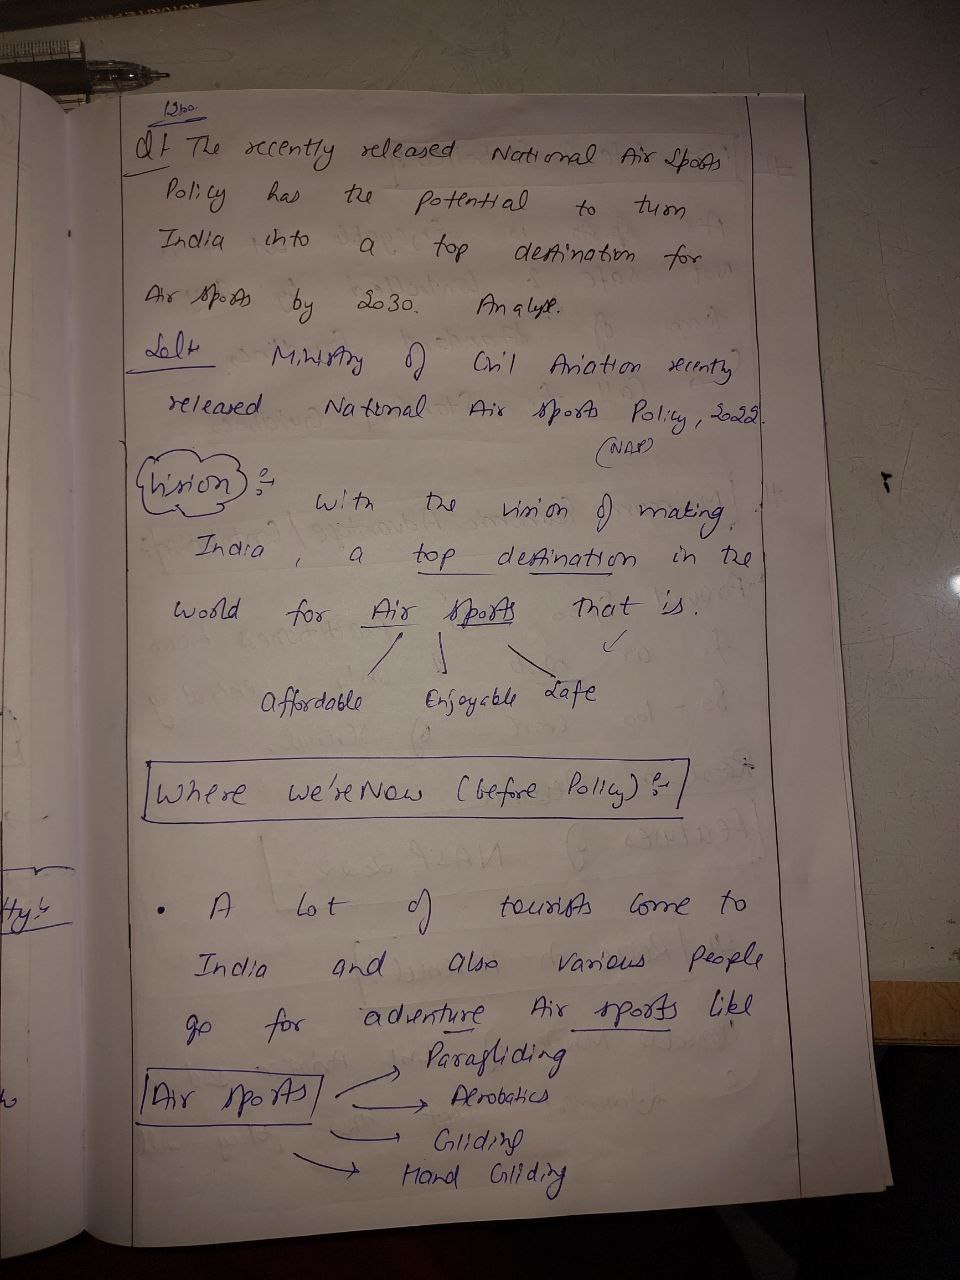 Q1 The recently released National Air Sports
Policy has the potential to turn
India into a top destination for
Air Sports by 2030. Analyse.
Ministry of Civil Aviation recently
released National Air Sports Policy, 2022.
(NASP)
Vision :-
With the vision of making
India, a top destination in the
world for Air Sports that is.
Affordable Enjoyable Safe
Where we're Now (before Policy) :-
• A lot of tourists come to
India and also various people
go for adventure Air sports like
Paragliding
Air sports
Aerobatics
Gliding
Hand Gliding